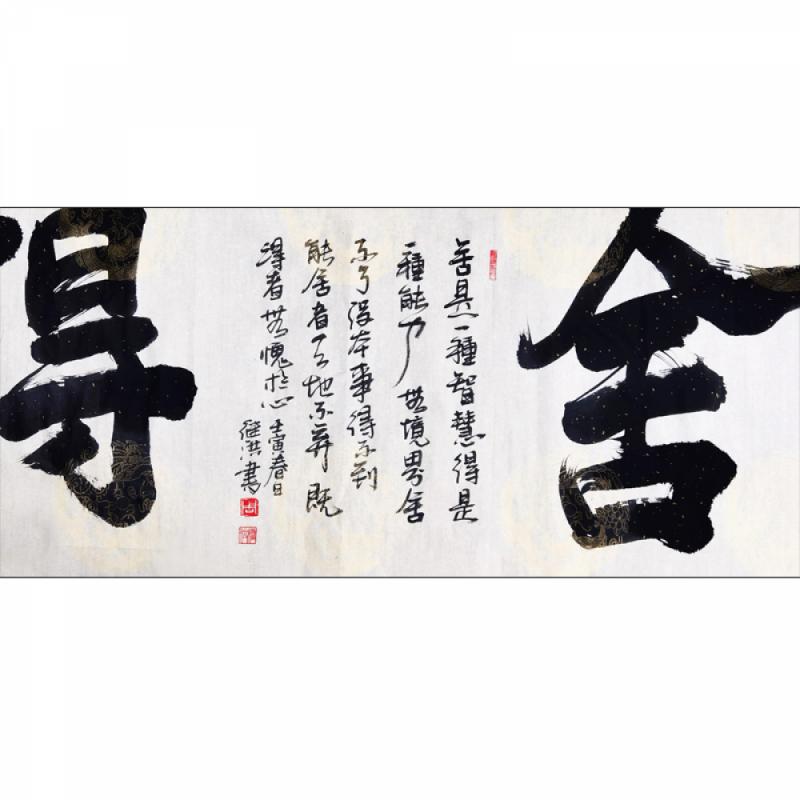 舍
舍是一種智慧得是
一種能力無境界舍
不了沒本事得不到
能舍者天地不弃既
得者無愧於心
壬寅春日
洪書
得